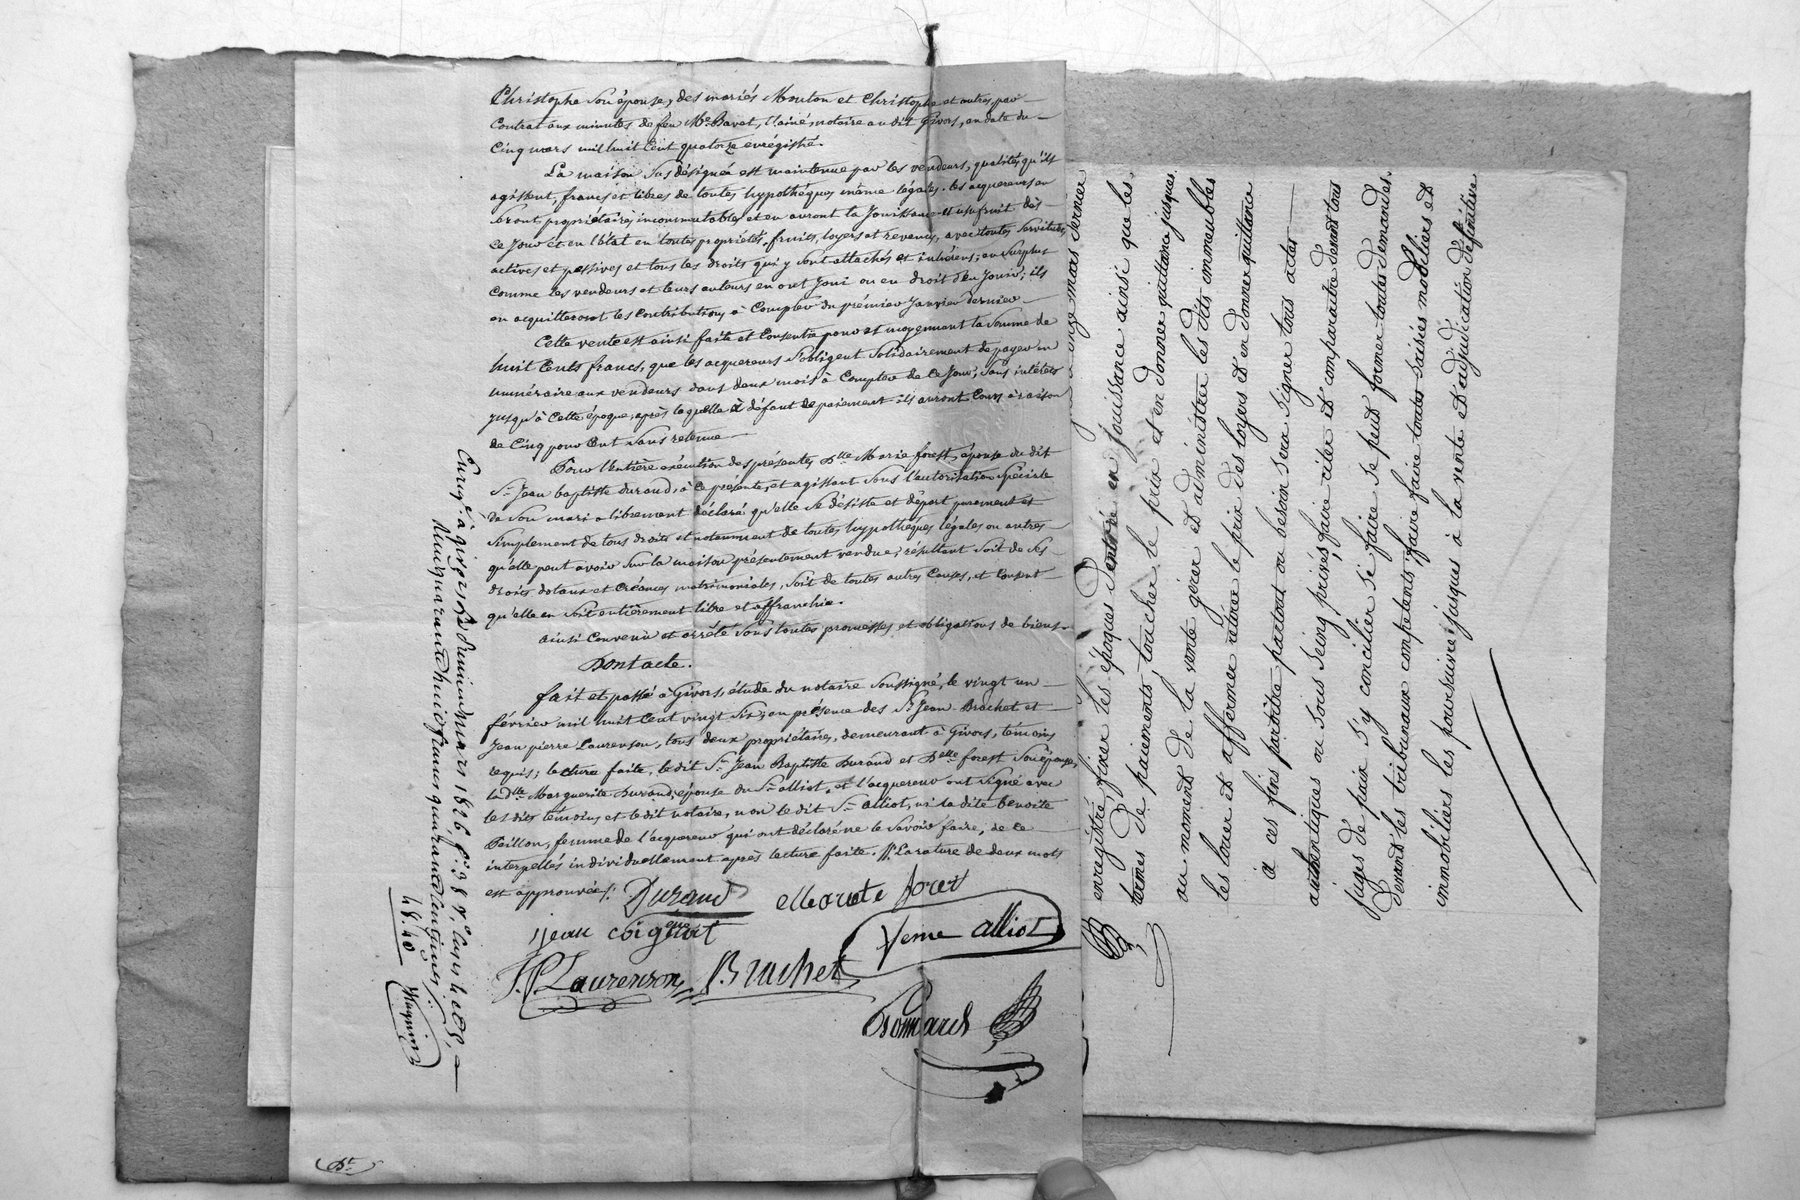 Christophe son épouse, des mariés Mouton et Christophe et autres par
contrat aux minutes de feu Me Bavet, l'ainé, notaire au dit Givors, en date du
cinq mars mil huit cent quatorze enrégistré.
La maison sus désignée est maintenue par les vendeurs, qualités qu'ils
agissent, francs et libres de toutes hypothéques même légales. les acquereurs en
seront propriétaires incommutables et en auront la Jouissance et usufruit dès
ce Jour et en l'état en toutes propriétés, fruits, loyers et revenus, avec toutes servitudes
actives et passives et tous les droits qui y sont attachés et inhérens; au surplus
comme les vendeurs et leurs auteurs en ont Joui ou eu droit d'en Jouir; ils
en acquitteront les contributions à compter du prémier Janvier dernier
Cette vente est ainsi faite et consentie pour et moyennant la somme de
huit cents francs, que les acquereurs s'obligent solidairement de payer en
numéraire aux vendeurs dans deux mois à compter de ce Jour, sans intérêts
jusqu'à cette époque, après laquelle à défaut de paiement ils auront cours à raison
de cinq pour cent sans retenue
Pour l'entière exécution des présentes Dlle Marie forest, épouse du dit
Sr Jean baptiste durand, à ce présente, et agissant sous l'autorisation spéciale
de son mari a librement déclaré qu'elle se désiste et départ purement et
simplement de tous droits et notamment de toutes hypothéques légales ou autres
qu'elle peut avoir sur la maison présentement vendue; résultant soit de ses
droits dotaux et créances matrimoniales, soit de toutes autres causes, et consent
qu'elle en soit entièrement libre et affranchie.
ainsi convenu et arrêté sous toutes promesses, et obligations de biens
Dont acte.
fait et passé à Givors, étude du notaire soussigné, le vingt un
février mil huit cent vingt six; en présence des Srs Jean Brachet et
Jean pierre Laurenson, tous deux propriétaires, demeurant à Givors, témoins
requis; lecture faite, le dit Sr Jean Baptiste Durand et Delle forest son épouse,
la dlle Marguerite Durand, épouse du Sr alliot, et l'acquereur ont signé avec
les dits témoins et le dit notaire, non le dit Sr alliot, ni la dite benoite
Paillon, femme de l'acquereur qui ont déclaré ne le savoir faire, de ce
interpellés individuellement après lecture faite. La rature de deux mots
est approuvée
Durand
jean coignat
feme alliot
J P Laurenson
Brachet
Enreg. à givors le
mars 1826 fo 38 vo
48.40
enregistré fixer les époques d'entrée en jouissance ainsi que les
termes de paiements, toucher le prix et en donner quittance jusques
au moment de la vente gérer et administrer les dits immeubles
les louer et affermer retirer le prix des loyers et en donner quittance
à ces fins paroitre partout ou besoin sera signer tous actes
authentiques ou sous seing privés, faire citer et comparaitre devant tous
juges de paix s'y concilier si faire se peut former toutes demandes
devant les tribunaux competents, faire faire toutes saisies mobiliers et
immobiliers les poursuivre jusques à la vente et adjudication définitive